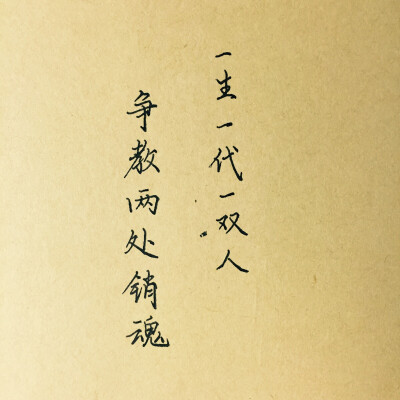 一生一代一双人
争教两处销魂